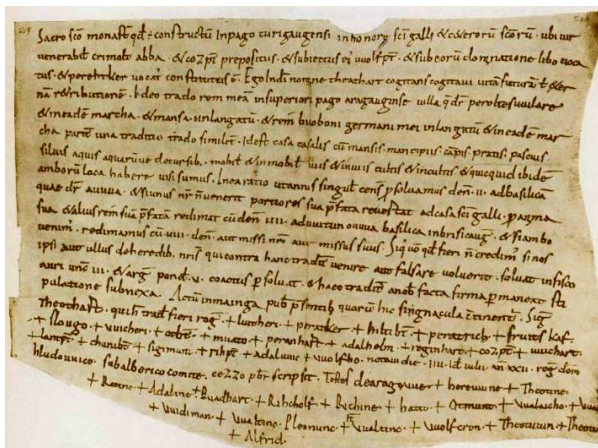 Sacro sco monast qd e constructu in pago turigaugensi in honore sci galli & ceterorum scoru ubi vir
venerabil crimolt abba & cozpt prepositus & subiectus ei wolfpt & sub eoru dominatione libo voca
tus & perehtker vocat constitutus e Ego Indi nomine theathart cogitans cogitavi vita futura & &er
na re&ributione Ideo trado rem mea in superiori pago aragauginse villa q dr peroltesuulare
& in eade marcha & mansa in langatun & re buoboni germani mei in langatun & in eade mar
cha parte una traditio trado similit Id est casa casalis cu mansis mancipiis capis pratis pascuis
silvis aquis aquarumve decursib mobil & inmobil viis & inviis cultis & incultis & quicquid ibide
amboru loca habere visi sumus In ea ratio ut annis singul cens psolvamus den II ad basilica
quae dr auuua & si unus nr n venerit portiores sua pfata revestat ad casa sci galli p razma
sua & alius re sua pfata redimat cu den IIII adventum ouuua basilica in brisicaug & si ambo
venim redimamus cu VIII den aut missi nri aut missus suus Si quo qd fieri n credim si nos
ipsi aut ullus de heredib nris qui contra hanc tradit venire aut falsare voluerit solvat in fisco
auri unc III & arg pond V coactus psolvat & haec traditio anob facta firma pmaneat sti
pulatione subnexa Actu in mainga pub psentib quoru hic signacula &inent Sign
Theothart qui h tradit fieri rog + luttheri + peratker + hiltibt + peratrich + fruits kaf
+ Slougo + vuicheri + otbt + muato + peranhart + adalhelm + reginhart + cozpt + vuichart
+ lantpt + chunibt + sigimunt + rihpt + adaluni + vuolfho notavi die IIII id iulii an XXII reg dom
hludouuico sub alborico comite cozzo pbr scripsit Testes de aragouue + horeuuine + Theotine
+ Ratine + Adaline + Ruadhart + Rihcholf + Richine + hatto + Otmunt + Vualaicho +
+ Vuidiman + Vualtine + Pleonunc + Vualtine + Vuolfcron + Theotuun + Theot
+ Alfrid